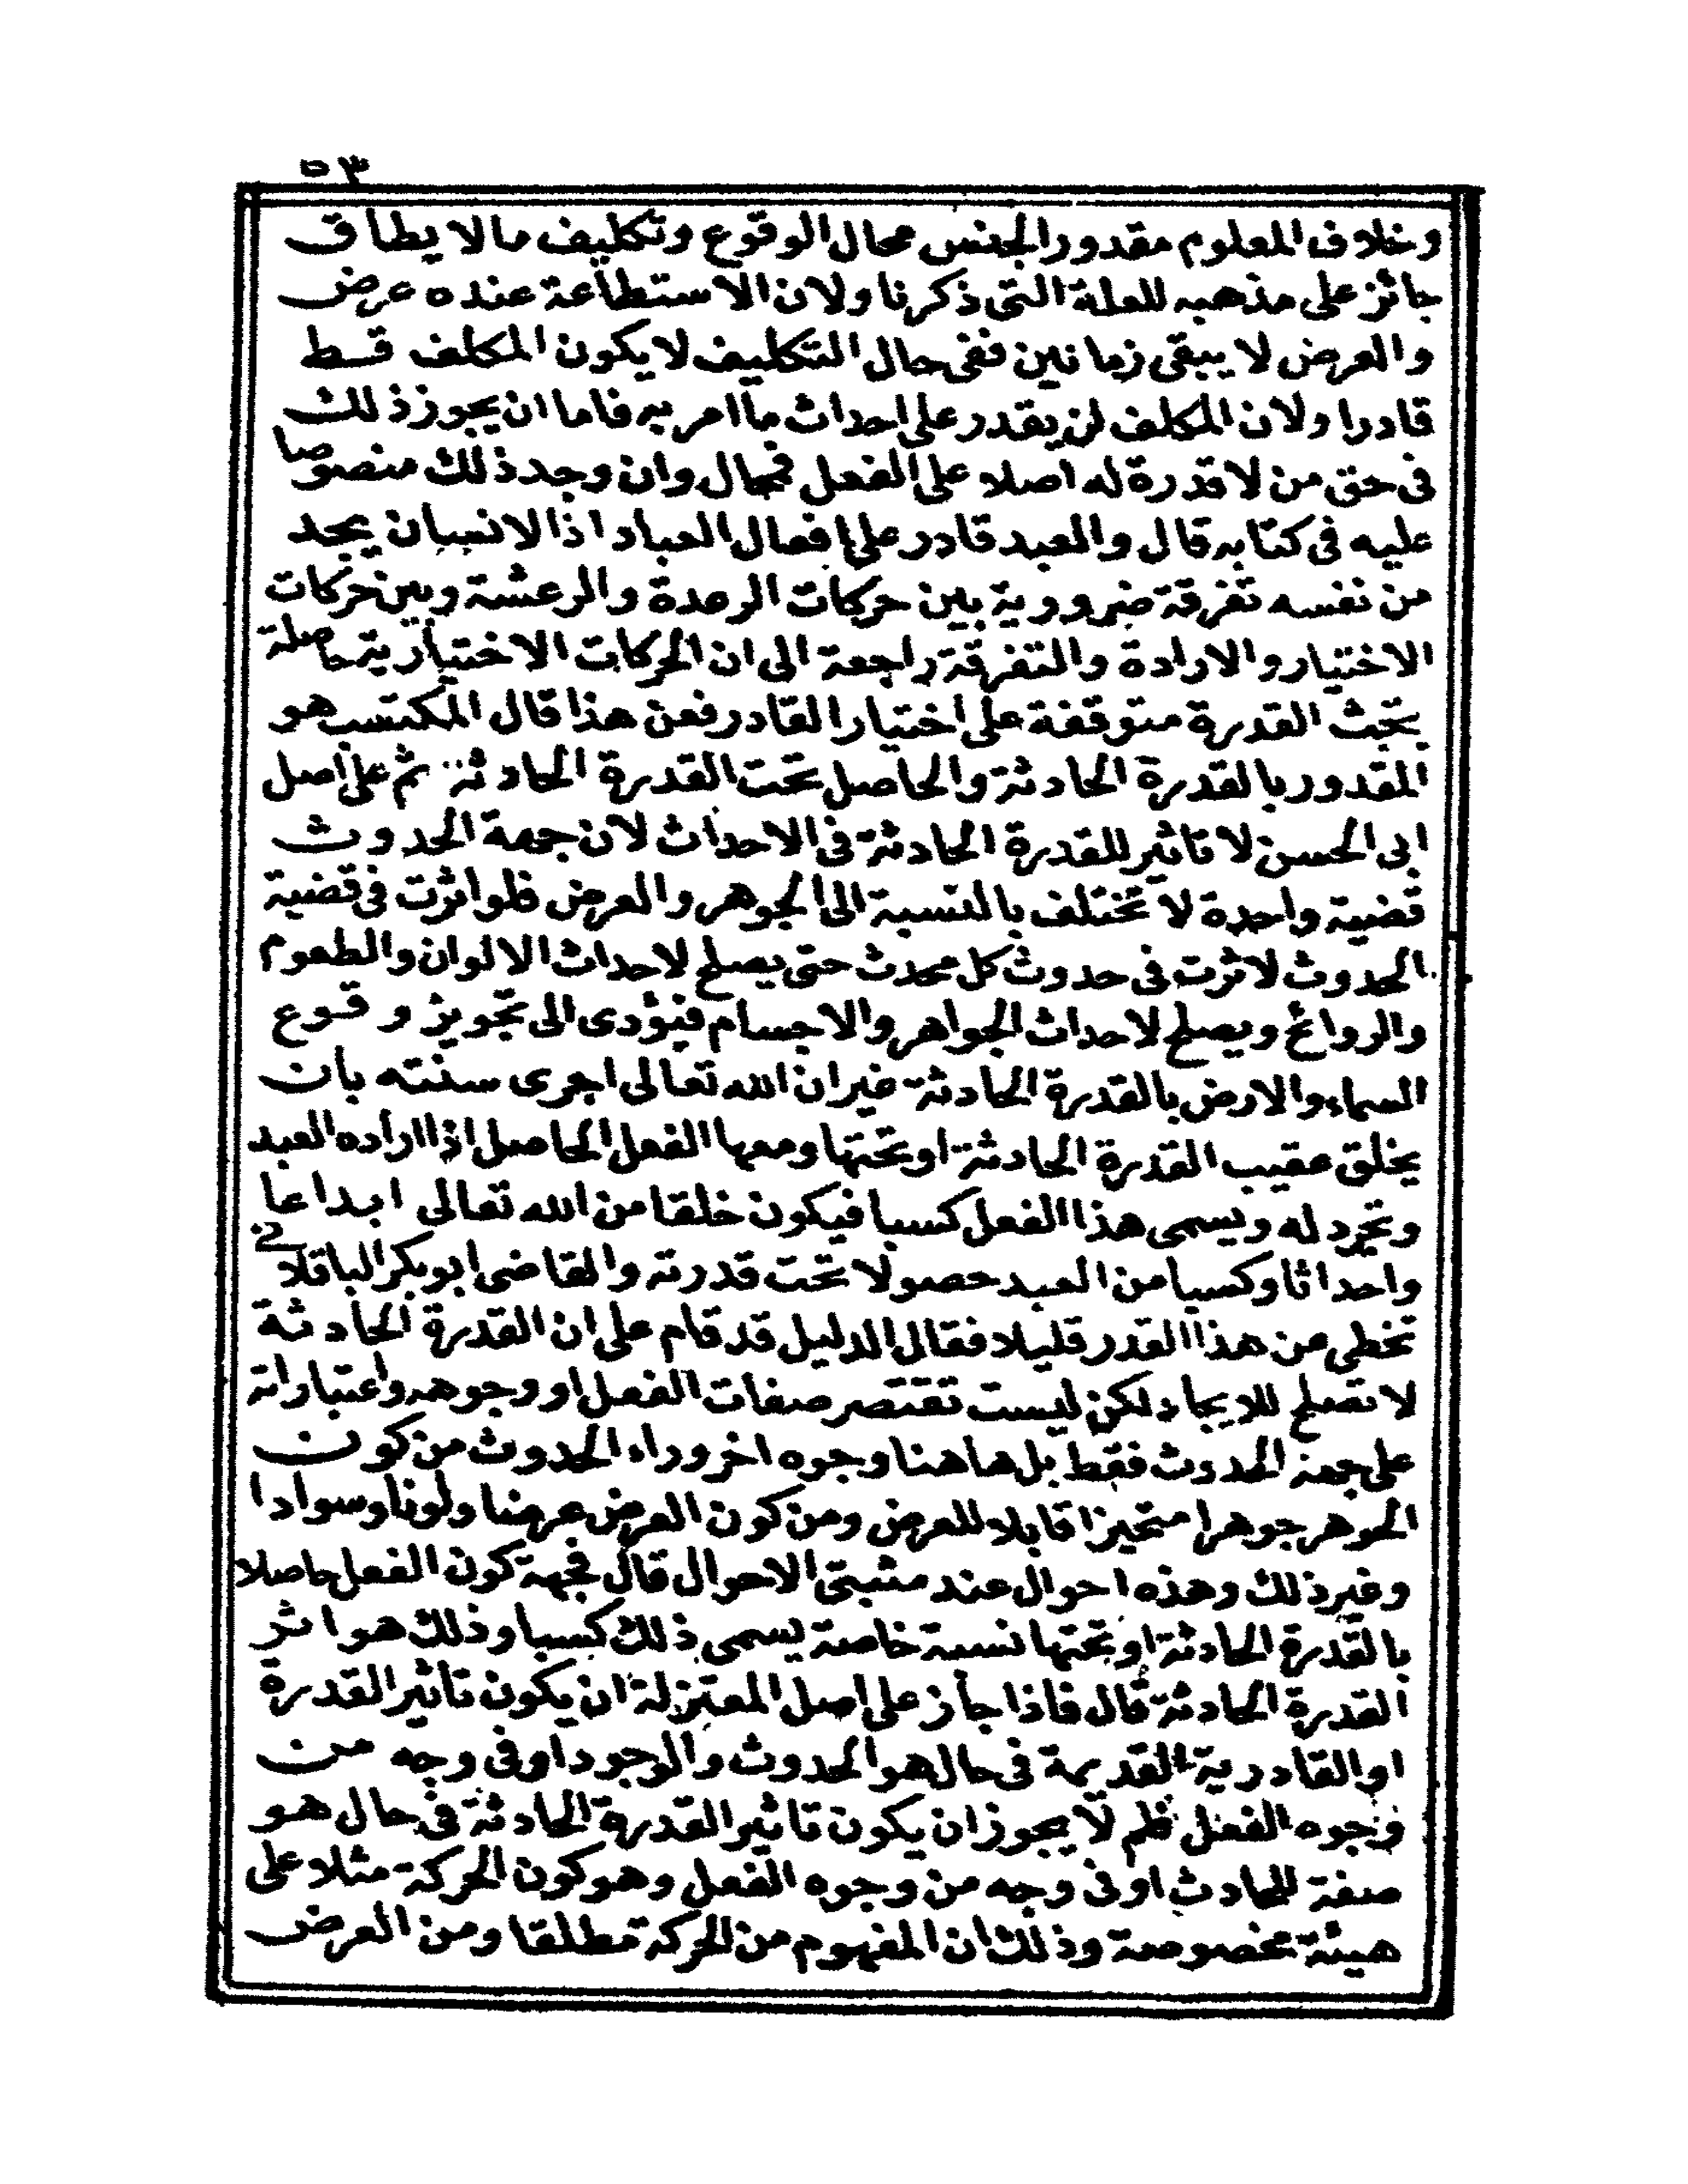 ٥٣
وخلاف المعلوم مقدور الجنس محال الوقوع وتكليف ما لا يطاق
جائز على مذهبه للعلة التى ذكرنا ولان الاستطاعة عنده عرض
والعرض لا يبقى زمانين ففى حال التكليف لا يكون المكلف قط
قادرا ولان المكلف لن يقدر على احداث ما امر به فاما ان يجوز ذلك
فى حق من لا قدرة له اصلا على الفعل فمحال وان وجد ذلك منصوصا
عليه فى كتابه قال والعبد قادر على افعال العباد اذ الانسان يجد
من نفسه تفرقة ضرورية بين حركات الرعدة والرعشة وبين حركات
الاختيار والارادة والتفرقة راجعة الى ان الحركات الاختيارية حاصلة
بحث القدرة متوقفة على اختيار القادر فعن هذا قال المكتسب هو
المقدور بالقدرة الحادثة والحاصل تحت القدرة الحادثة ثم على اصل
ابى الحسن لا تاثير للقدرة الحادثة فى الاحداث لان جهة الحدوث
قضية واحدة لا تختلف بالنسبة الى الجوهر والعرض فلو اثرت فى قضية
الحدوث لاثرت فى حدوث كل محدث حتى يصلح لاحداث الالوان والطعوم
والروائح ويصلح لاحداث الجواهر والاجسام فيؤدى الى تجويز وقوع
السماء والارض بالقدرة الحادثة غير ان الله تعالى اجرى سنته بان
يخلق عقيب القدرة الحادثة او تحتها ومعها الفعل الحاصل اذا اراده العبد
وتجرد له ويسمى هذا الفعل كسبا فيكون خلقا من الله تعالى ابداعا
واحداثا وكسبا من العبد حصولا تحت قدرته والقاضى ابو بكر الباقلانى
تخطى عن هذا القدر قليلا فقال الدليل قد قام على ان القدرة الحادثة
لا تصلح للايجاد لكن ليست تقتصر صفات الفعل او وجوهه واعتباراته
على جهة الحدوث فقط بل هاهنا وجوه اخر وراء الحدوث من كون
الجوهر جوهرا متحيزا قابلا للعرض ومن كون العرض عرضا ولونا وسوادا
وغير ذلك وهذه احوال عند مثبتى الاحوال قال فجهة كون الفعل حاصلا
بالقدرة الحادثة او تحتها نسبة خاصة يسمى ذلك كسبا وذلك هو اثر
القدرة الحادثة قال فاذا جاز على اصل المعتزلة ان يكون تاثير القدرة
او القادرية القديمة فى حال هو الحدوث والوجود او فى وجه من
وجوه الفعل فلم لا يجوز ان يكون تاثير القدرة الحادثة فى حال هو
صفة للحادث او فى وجه من وجوه الفعل وهو كون الحركة مثلا على
هيئة مخصوصة وذلك ان المفهوم من الحركة مطلقا ومن العرض